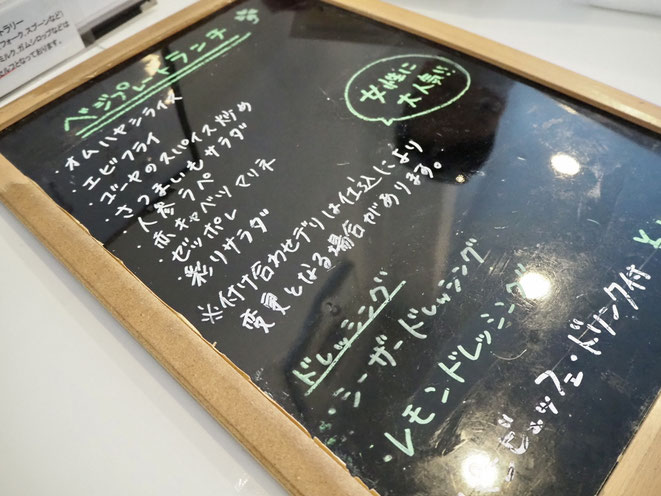 トラリー
フォーク、スプーンなど)
ミルク、ガムシロップなどは
となっております。
ベジプレートランチ
女性に
大人気!!
・オムハヤシライス
・エビフライ
・ゴーヤのスパイス炒め
・さつまいもサラダ
・人参ラペ
・赤キャベツマリネ
・ゼッポレ
・彩りサラダ
※付け合わせデリは仕込により
変更となる場合があります。
ドレッシング
・シーザードレッシング
・レモンドレッシング
ビュッフェ・ドリンク付
¥